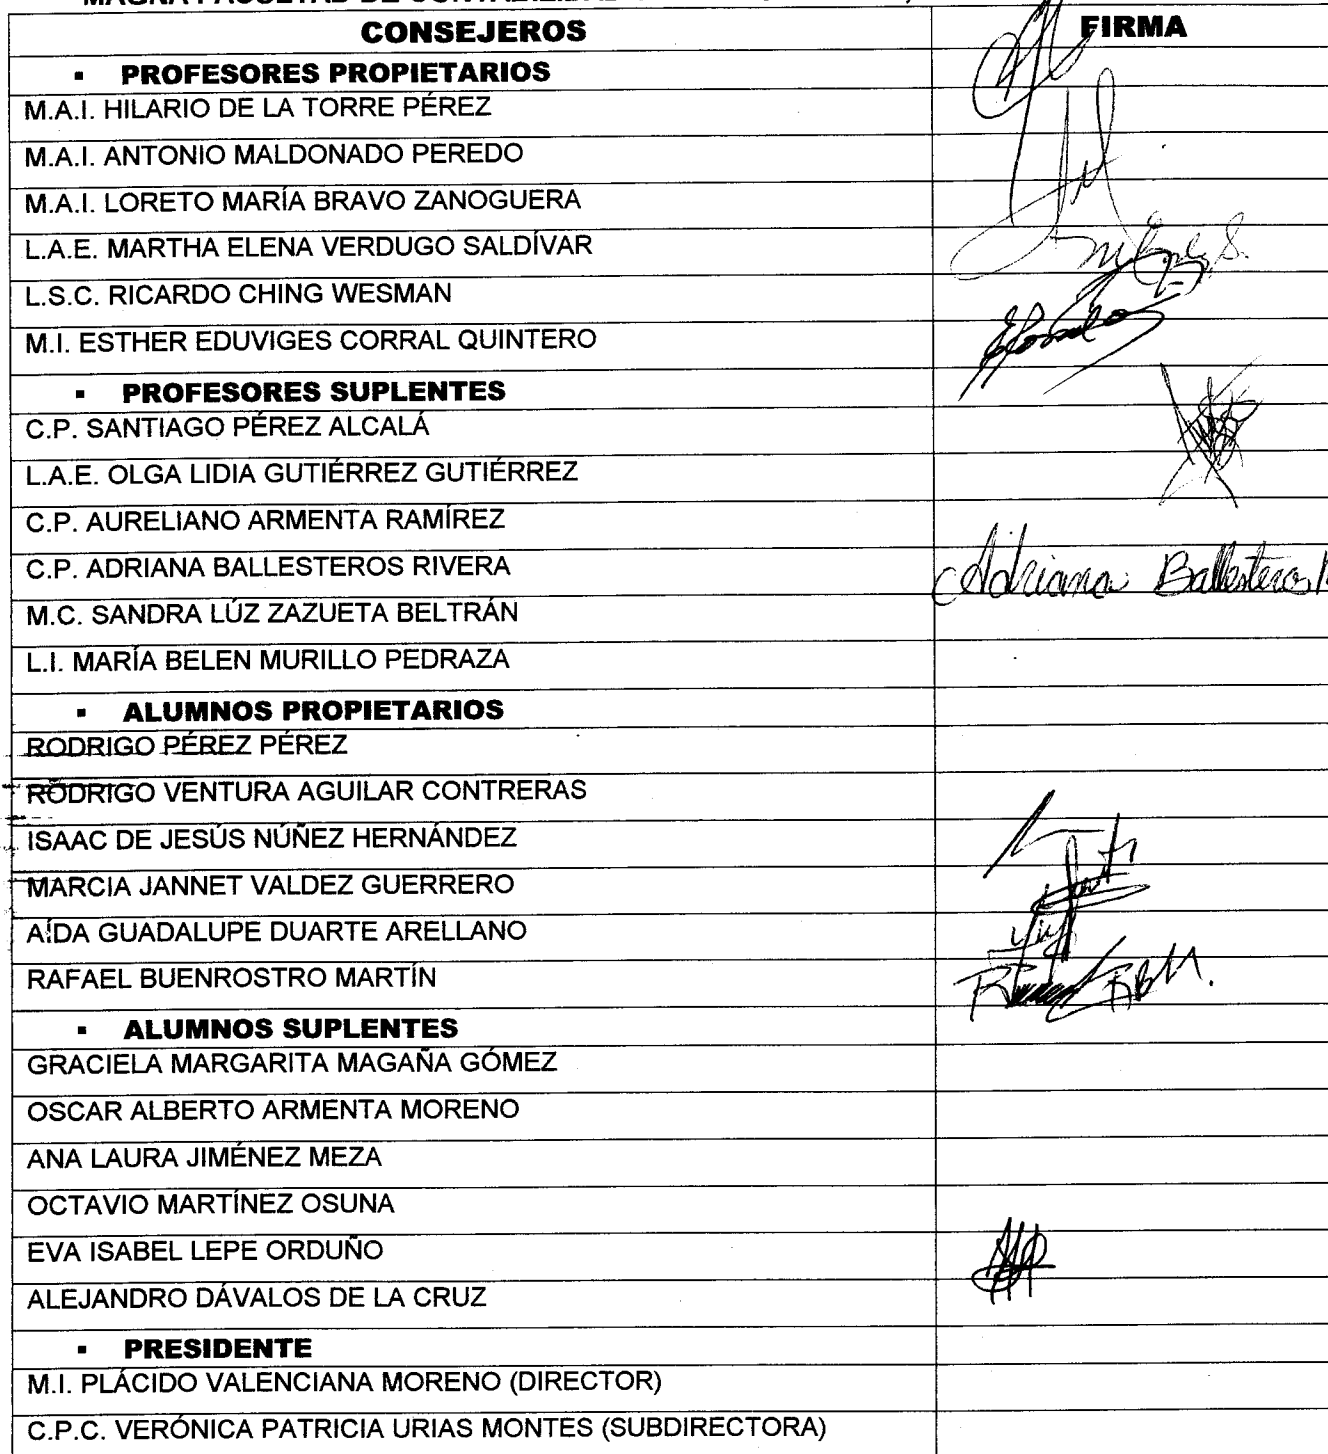 CONSEJEROS FIRMA
▪ PROFESORES PROPIETARIOS
M.A.I. HILARIO DE LA TORRE PÉREZ
M.A.I. ANTONIO MALDONADO PEREDO
M.A.I. LORETO MARÍA BRAVO ZANOGUERA
L.A.E. MARTHA ELENA VERDUGO SALDÍVAR
L.S.C. RICARDO CHING WESMAN
M.I. ESTHER EDUVIGES CORRAL QUINTERO
▪ PROFESORES SUPLENTES
C.P. SANTIAGO PÉREZ ALCALÁ
L.A.E. OLGA LIDIA GUTIÉRREZ GUTIÉRREZ
C.P. AURELIANO ARMENTA RAMÍREZ
C.P. ADRIANA BALLESTEROS RIVERA Adriana Ballesteros R
M.C. SANDRA LÚZ ZAZUETA BELTRÁN
L.I. MARÍA BELEN MURILLO PEDRAZA
▪ ALUMNOS PROPIETARIOS
RODRIGO PÉREZ PÉREZ
RODRIGO VENTURA AGUILAR CONTRERAS
ISAAC DE JESÚS NÚÑEZ HERNÁNDEZ
MARCIA JANNET VALDEZ GUERRERO
AÍDA GUADALUPE DUARTE ARELLANO
RAFAEL BUENROSTRO MARTÍN
▪ ALUMNOS SUPLENTES
GRACIELA MARGARITA MAGAÑA GÓMEZ
OSCAR ALBERTO ARMENTA MORENO
ANA LAURA JIMÉNEZ MEZA
OCTAVIO MARTÍNEZ OSUNA
EVA ISABEL LEPE ORDUÑO
ALEJANDRO DÁVALOS DE LA CRUZ
▪ PRESIDENTE
M.I. PLÁCIDO VALENCIANA MORENO (DIRECTOR)
C.P.C. VERÓNICA PATRICIA URIAS MONTES (SUBDIRECTORA)